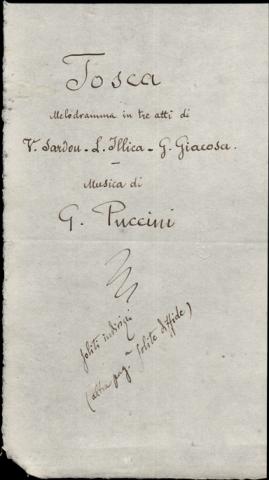 Tosca
Melodramma in tre atti di
V. Sardou - L. Illica - G. Giacosa.
Musica di
G. Puccini
soliti indirizzi
(altra pag.a Solite diffide)